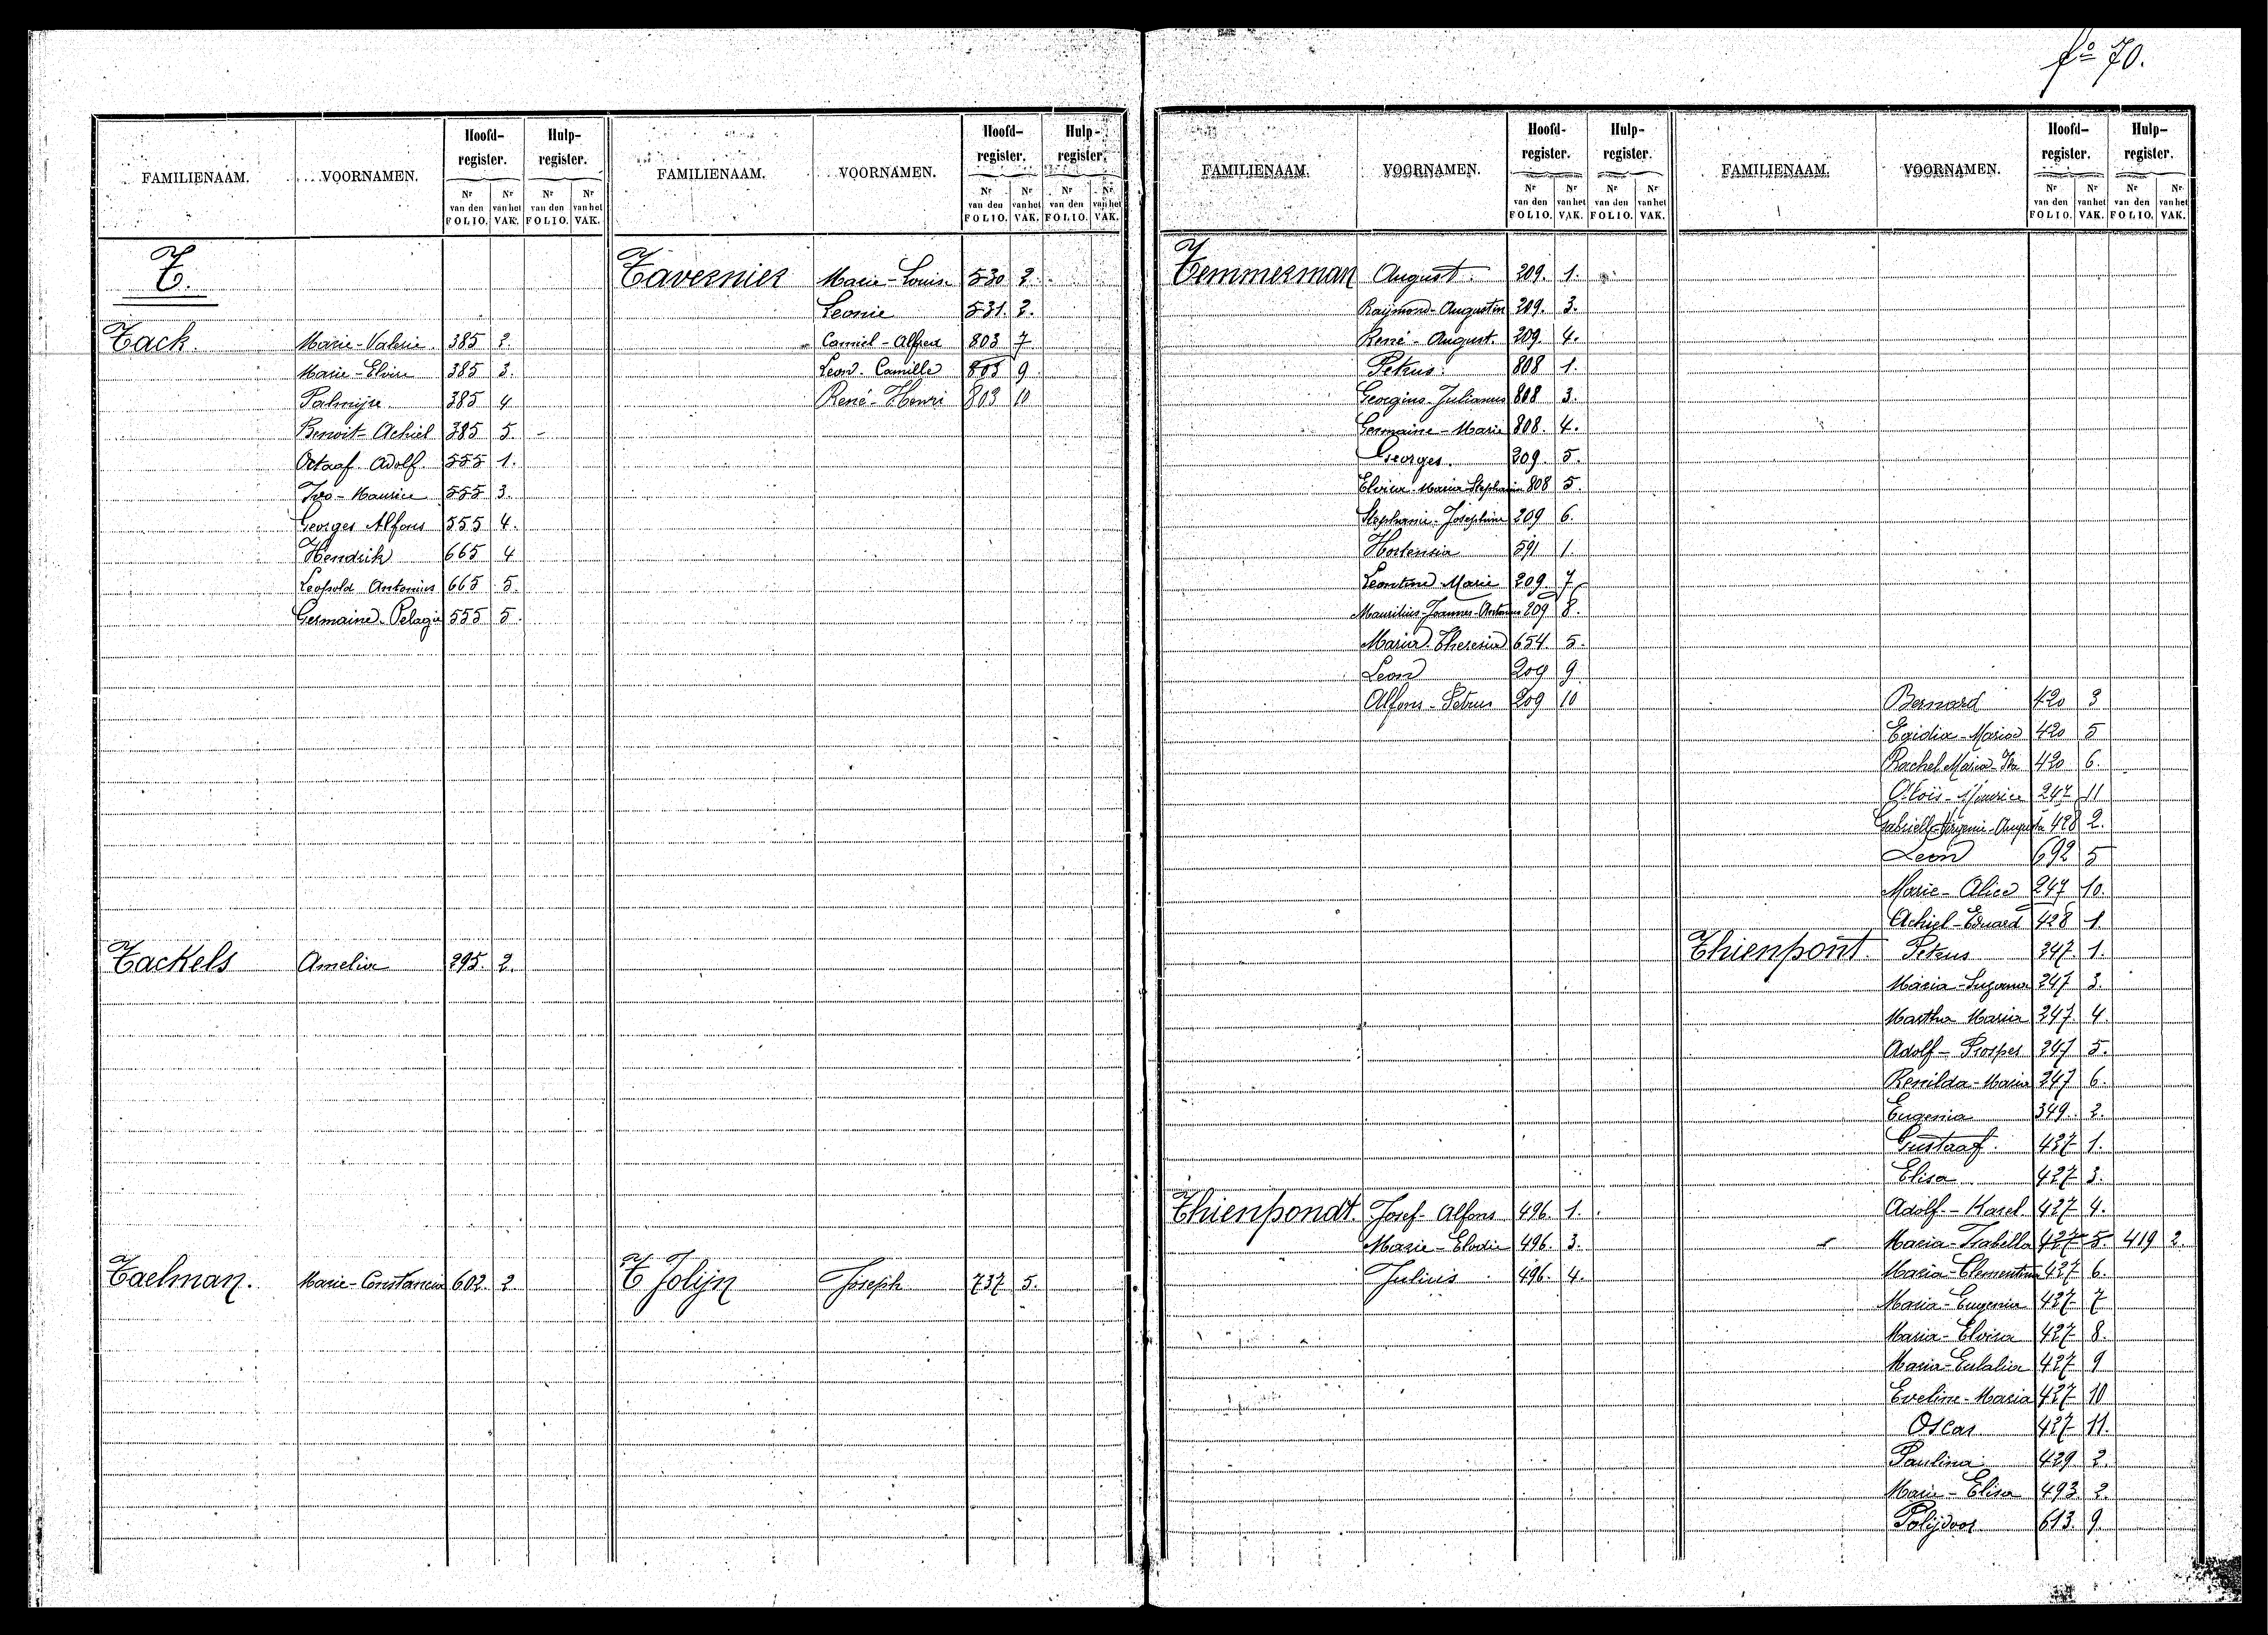 fo 70.
FAMILIENAAM. VOORNAMEN. Hoofd-register. Hulp-register.
Nr van den FOLIO. Nr van het VAK. Nr van den FOLIO. Nr van het VAK.
T.
Tack. Marie-Valerie. 385 2.
Marie-Elvire 385 3.
Palmijre 385 4
Benoit-Achiel 385 5.
Octaaf Adolf. 555 1.
Ivo-Maurice 555 3.
Georges Alfons 555 4.
Hendrik 665 4
Leopold Antonius 665 5.
Germaine-Pelagie 555 5.
Tackels Amelia 295. 2.
Taelman. Marie-Constancia 602. 2
FAMILIENAAM. VOORNAMEN. Hoofd-register. Hulp-register.
Nr van den FOLIO. Nr van het VAK. Nr van den FOLIO. Nr van het VAK.
Tavernier Marie-Louise 530 2.
Leonie 531. 2.
Camiel-Alfred 803 7
Leon-Camille 803 9
René-Henri 803 10
T'Jolijn Joseph 737 5.
FAMILIENAAM. VOORNAMEN. Hoofd-register. Hulp-register.
Nr van den FOLIO. Nr van het VAK. Nr van den FOLIO. Nr van het VAK.
Temmerman August. 209. 1.
Raymond-Augustin 209. 3.
René-August. 209. 4.
Petrus. 808 1.
Georgius-Julianus 808 3.
Germaine-Marie 808. 4.
Georges. 209. 5.
Maria Stephania 808 5.
Stephanie-Josephine 209 6.
Hortensia 591 1.
Leontine Marie 209 7
Maurilius-Joannes-Antonius 209 8.
Maria Theresia 654. 5.
Leon 209 9
Alfons-Petrus 209 10
Thienpondt. Josef-Alfons 496. 1.
Marie-Elodie 496. 3.
Julius 496. 4.
FAMILIENAAM. VOORNAMEN. Hoofd-register. Hulp-register.
Nr van den FOLIO. Nr van het VAK. Nr van den FOLIO. Nr van het VAK.
Bernard 420 3
Egidia-Maria 420 5
Rachel Maria 420 6.
Aloïs-Maurice 247 11
Gabrielle-Virginie-Augusta 428 2.
Leon 692 5
Marie-Alice 247 10.
Achiel-Eduard 428 1.
Thienpont. Petrus 247. 1.
Maria-Suzanna 247 3.
Martha Maria 247. 4.
Adolf-Prosper 247 5.
Renilda-Maria 247 6.
Eugenia 349. 2.
Gustaaf. 427 1.
Elisa 427 3.
Adolf-Karel 427 4.
Maria-Isabella 427 5. 419 2.
Maria-Clementina 427 6.
Maria-Eugenia 427 7
Maria-Elvira 427 8.
Maria-Eulalia 427 9
Eveline-Maria 427 10
Oscar 427 11.
Paulina 429 2.
Marie-Elisa 493 2.
Polijdoor 613. 9.